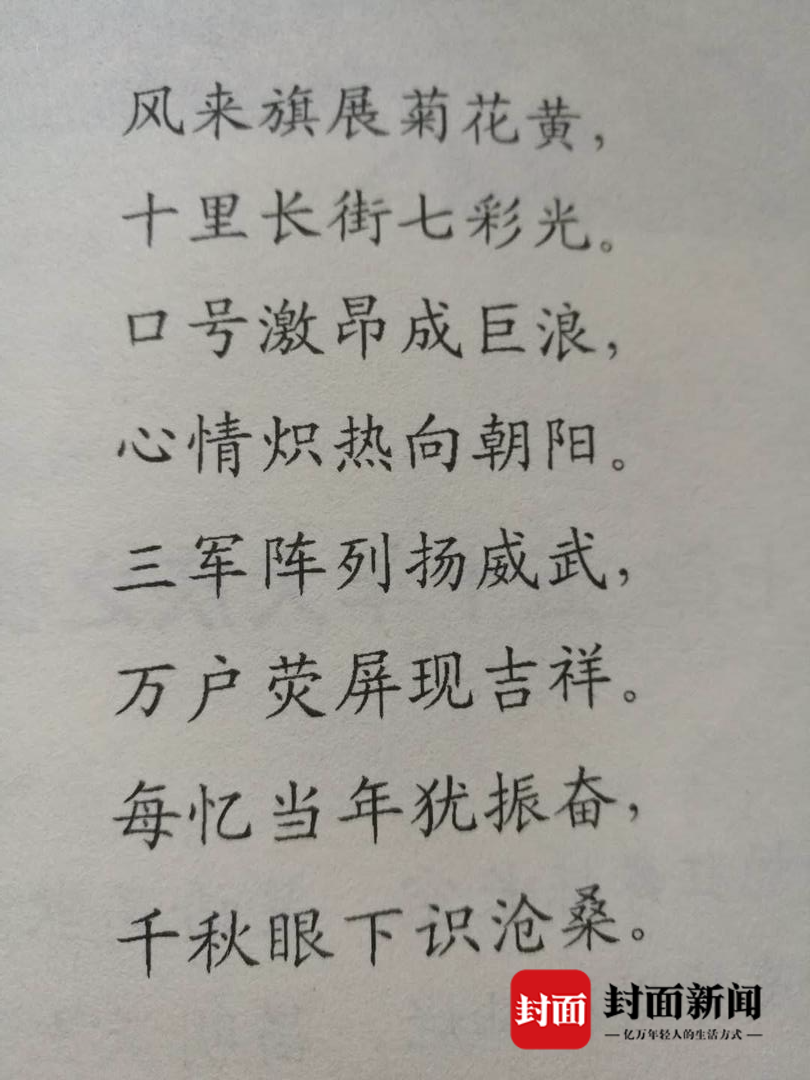 风来旗展菊花黄，
十里长街七彩光。
口号激昂成巨浪，
心情炽热向朝阳。
三军阵列扬威武，
万户荧屏现吉祥。
每忆当年犹振奋，
千秋眼下识沧桑。
封面 封面新闻
亿万年轻人的生活方式